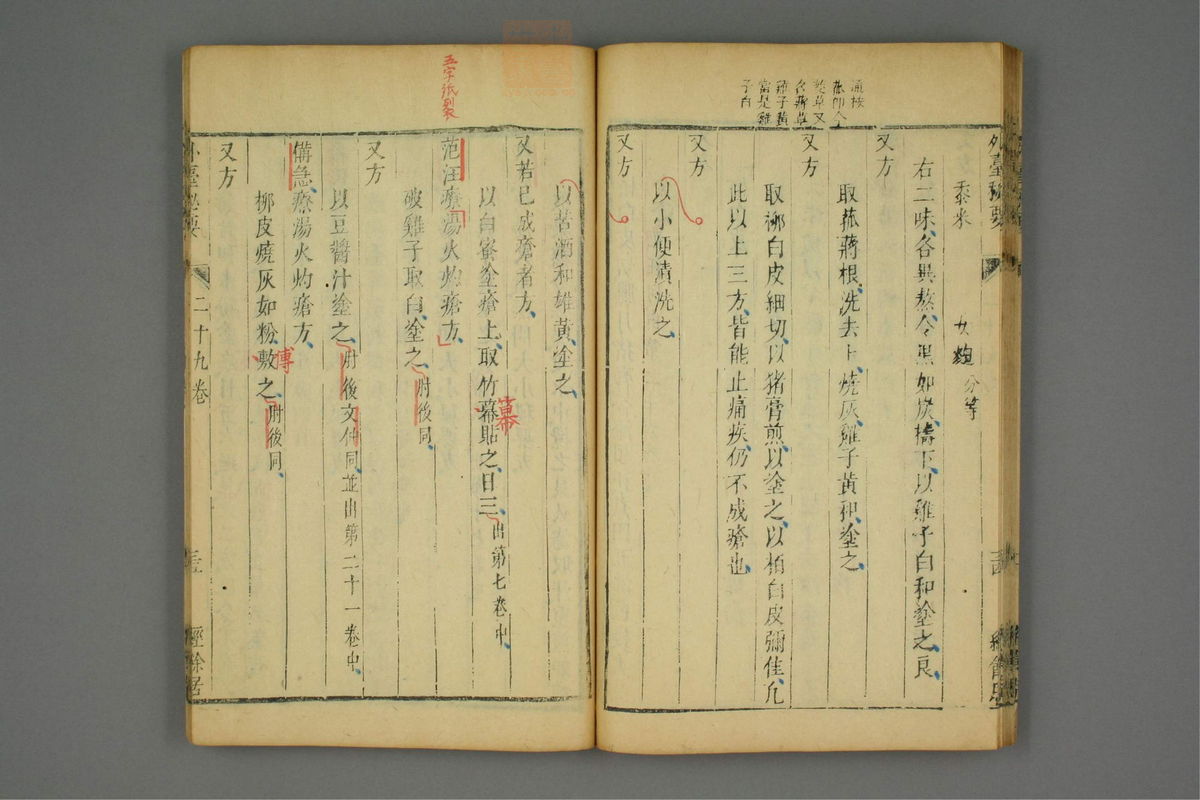 外臺秘要
通按
菰卽今
茭草又
名蔣草
雞子黃
當是雞
子白
黍米　女麴分等
右二味各異熬令黑如炭擣下以雞子白和塗之良
又方
取菰蔣根洗去土燒灰雞子黃和塗之
又方
取柳白皮細切以猪膏煎以塗之以柏白皮彌佳凡
此以上三方皆能止痛疾仍不成瘡也
又方
以小便漬洗之
又方
以苦酒和雄黃塗之
又若已成瘡者方
以白蜜塗瘡上取竹幕貼之日三出第七卷中
幕
五字紙裂
范汪療湯火灼瘡方
破雞子取白塗之肘後同
又方
以豆醬汁塗之肘後文仲同並出第二十一卷中
備急療湯火灼瘡方
柳皮燒灰如粉敷之肘後同
傅
又方
外臺秘要
二十九卷
經餘居